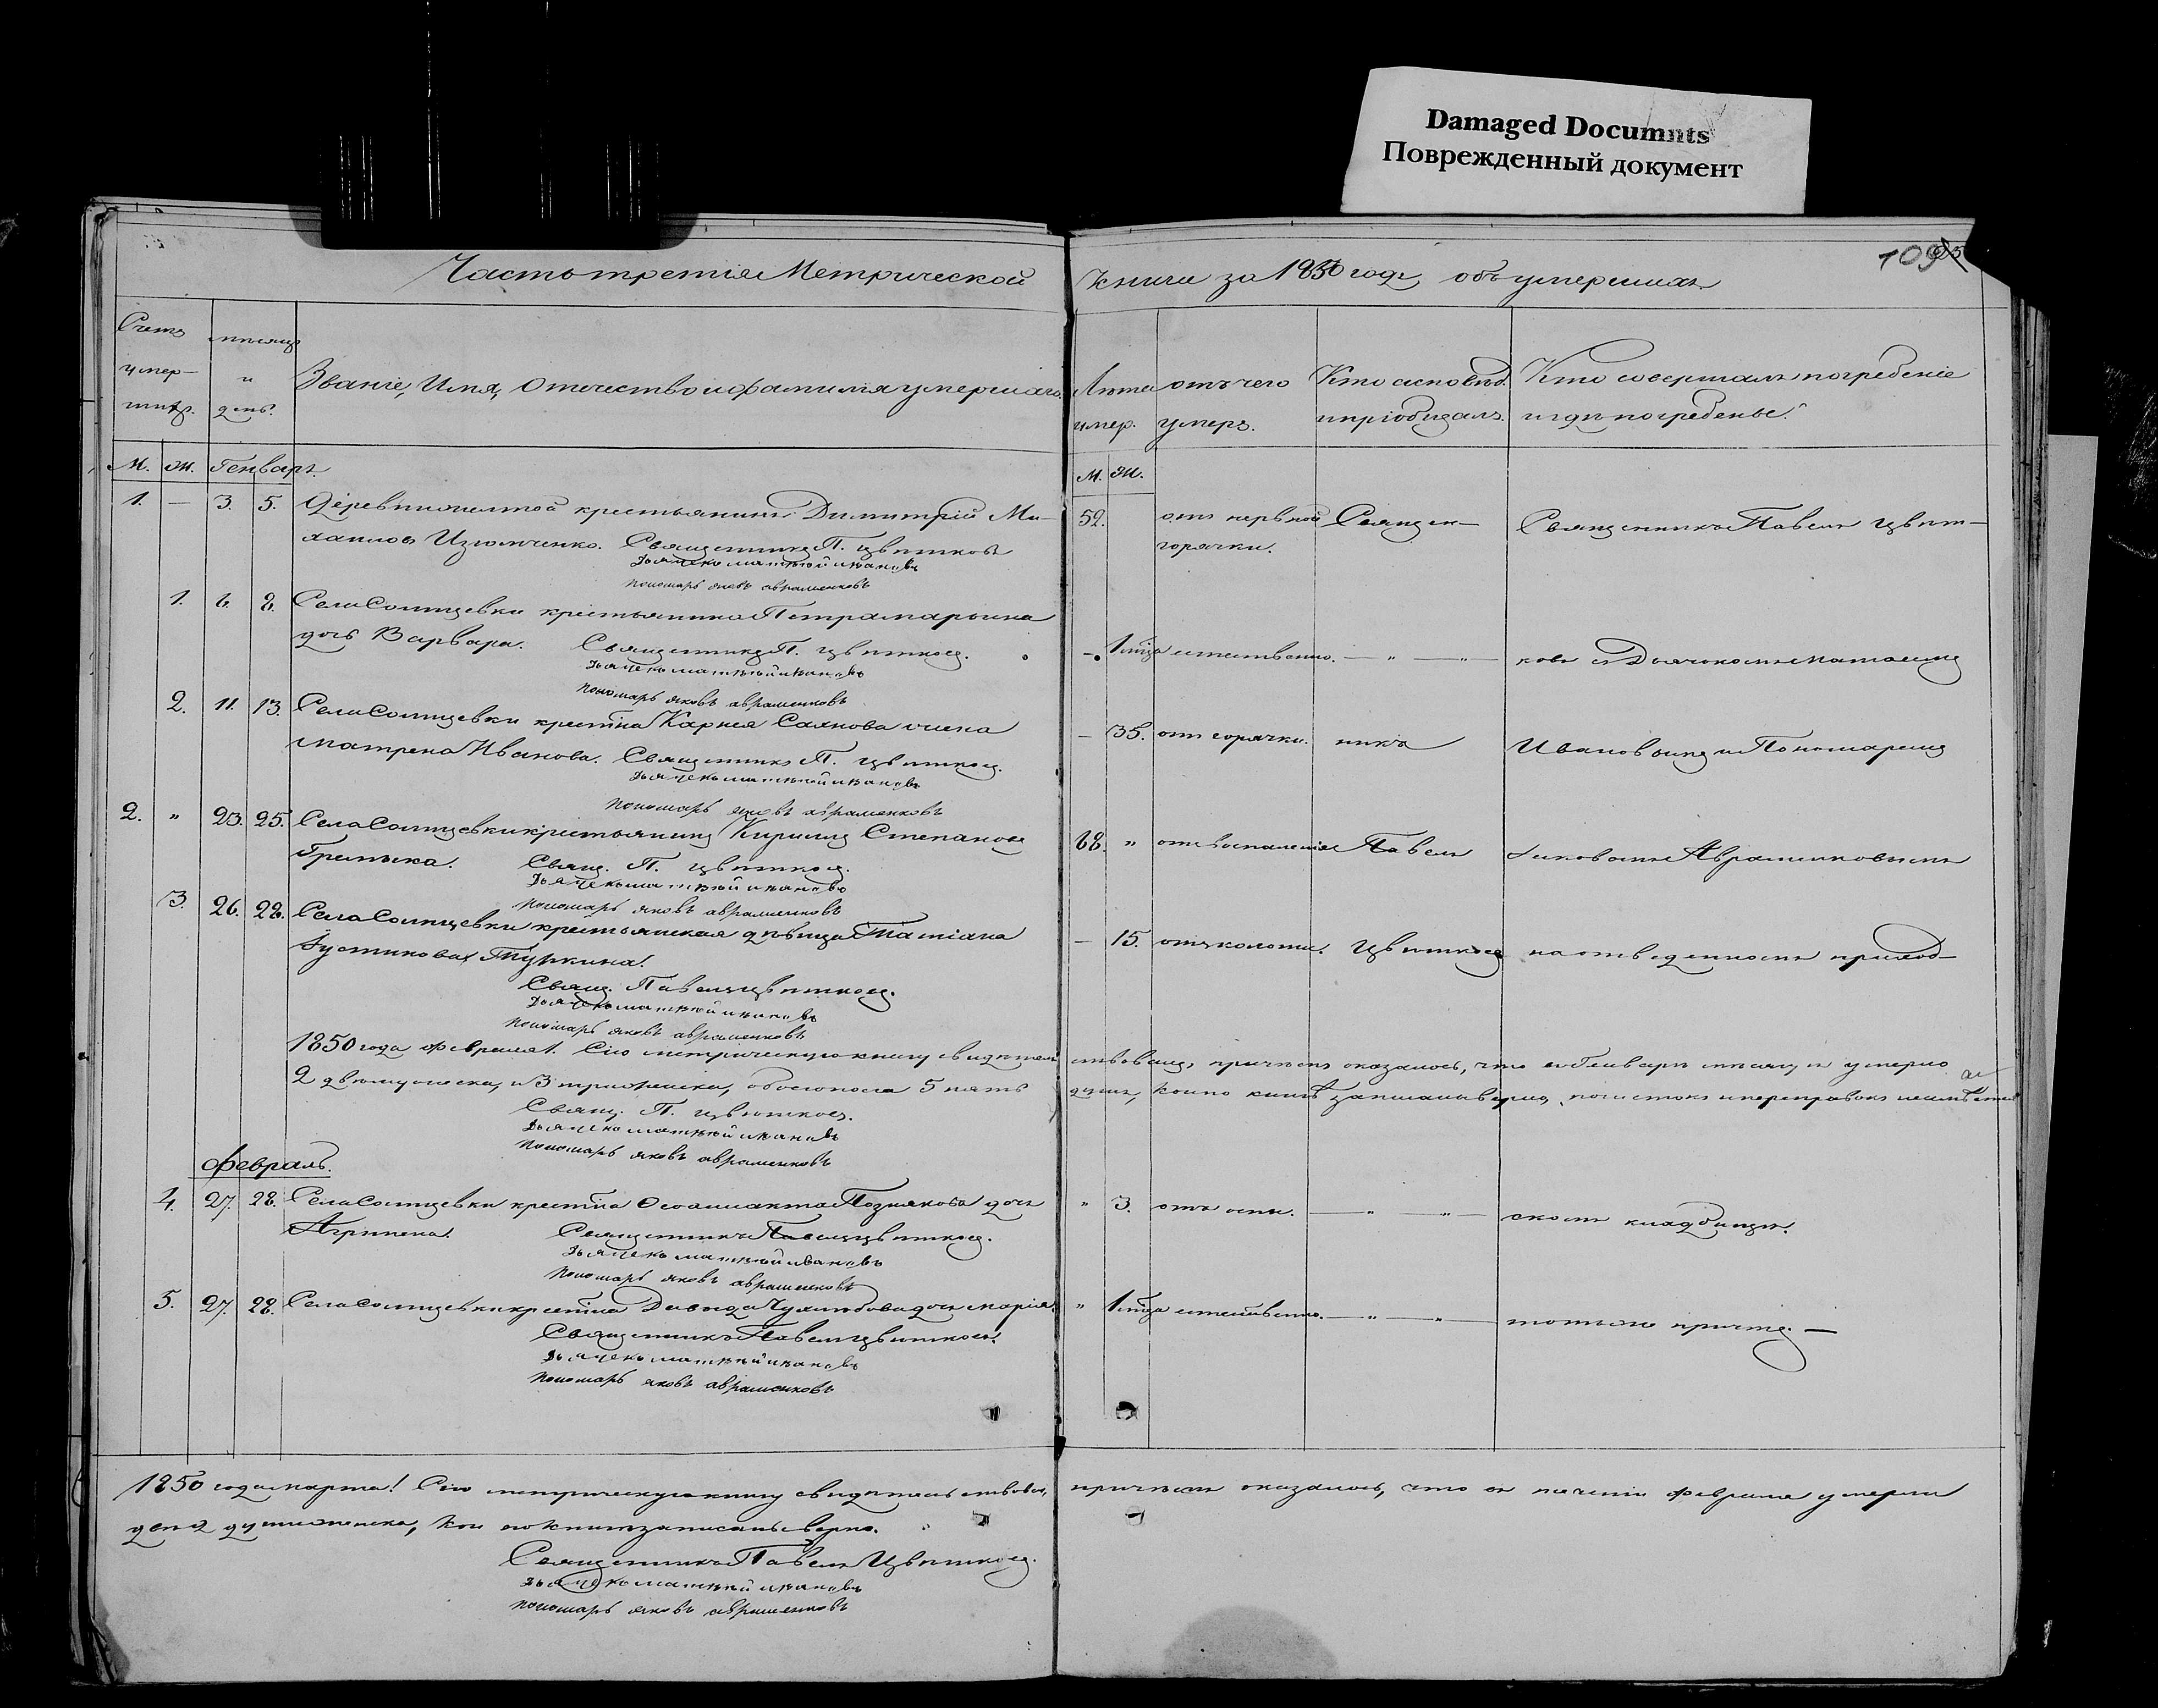 Damaged Documnts
Поврежденный документ
109
Часть третія Метрической книги за 1850 годъ, объ умершихъ
Счетъ умер-шихъ.
мѣсяцъ и день.
Званіе, Имя, Отечество и фамилія умершаго.
Лѣта умер.
отъ чего умеръ.
Кто исповѣд. и пріобщалъ.
Кто совершалъ погребеніе и гдѣ погребены.
М. Ж. Генварь.
М. Ж.
1. — 3. 5. Деревни крестьянинъ Димитрій Ми-
хаиловъ Изюмченко. Священникъ П. Цвѣтковъ
52. отъ нервной горячки. Священ- Священникъ Павелъ Цвѣт-
Дьячекъ матвѣй ивановъ
пономарь яковъ авраменковъ
1. 6. 8. Села Солнцевки крестьянина Петра Марьина
дочь Варвара. Священникъ П. Цвѣтковъ.
— 1 года естественно. — „ — „ ковъ съ Дьячкомъ Матвеемъ
Дьячекъ матвѣй ивановъ
пономарь яковъ авраменковъ
2. 11. 13. Села Солнцевки крестіна Карнея Саянова жена
Матрена Иванова. Священникъ П. Цвѣтковъ.
— 35. отъ горячки. никъ Ивановымъ и Пономаремъ
Дьячекъ матвѣй ивановъ
пономарь яковъ авраменковъ
2. „ 23. 25. Села Солнцевки крестьянинъ Кириллъ Степановъ
Свящ. П. Цвѣтковъ.
68. „ отъ воспаленія Павелъ Яковомъ Авраменковымъ
Дьячекъ матвѣй ивановъ
пономарь яковъ авраменковъ
3. 26. 28. Села Солнцевки крестьянская дѣвица Татіана
Іустинова Туркина.
— 15. отъ колоти. Цвѣтковъ на отведенномъ приход-
Свящ. Павелъ Цвѣтковъ.
Дьячекъ матвѣй ивановъ
пономарь яковъ авраменковъ
1850 года Февраля 1. Сію метрическую книгу свидѣтельствовали, причемъ оказалось, что въ Генварѣ мѣсяцѣ умерло
2 двѣ мужеска, и 3 три женска, обоего пола 5 пять душъ, кои по книгѣ записаны верно, почистокъ и переправокъ неимѣется
Свящ. П. Цвѣтковъ.
Дьячекъ матвѣй ивановъ
пономарь яковъ авраменковъ
Февраль.
4. 27. 28. Села Солнцевки крестіна Ѳеофилакта Познякова дочь
Агрипена. Священникъ Павелъ Цвѣтковъ.
„ 3. отъ оспы. — „ — „ скомъ кладбищѣ.
Дьячекъ матвѣй ивановъ
пономарь яковъ авраменковъ
5. 27. 28. Села Солнцевки крестіна Давыда дочь Марія.
„ 1 года естественно. — „ — „ тотъ же причтъ. —
Священникъ Павелъ Цвѣтковъ.
Дьячекъ матвѣй ивановъ
пономарь яковъ авраменковъ
1850 года марта 1. Сію метрическую книгу свидѣтельствовали, причемъ оказалось, что въ теченіи Февраля умерли
двѣ 2 души женска, кои по книгѣ записаны верно.
Священникъ Павелъ Цвѣтковъ.
Дьячекъ матвѣй ивановъ
пономарь яковъ авраменковъ